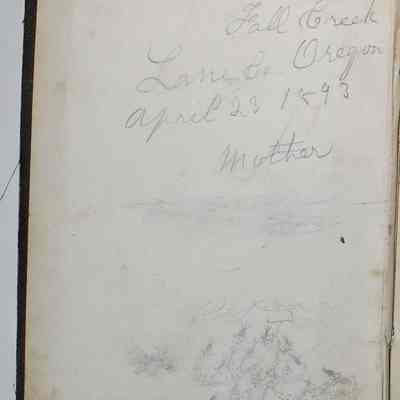 Fall Creek
Lane Co. Oregon
April 23 1893
Mother